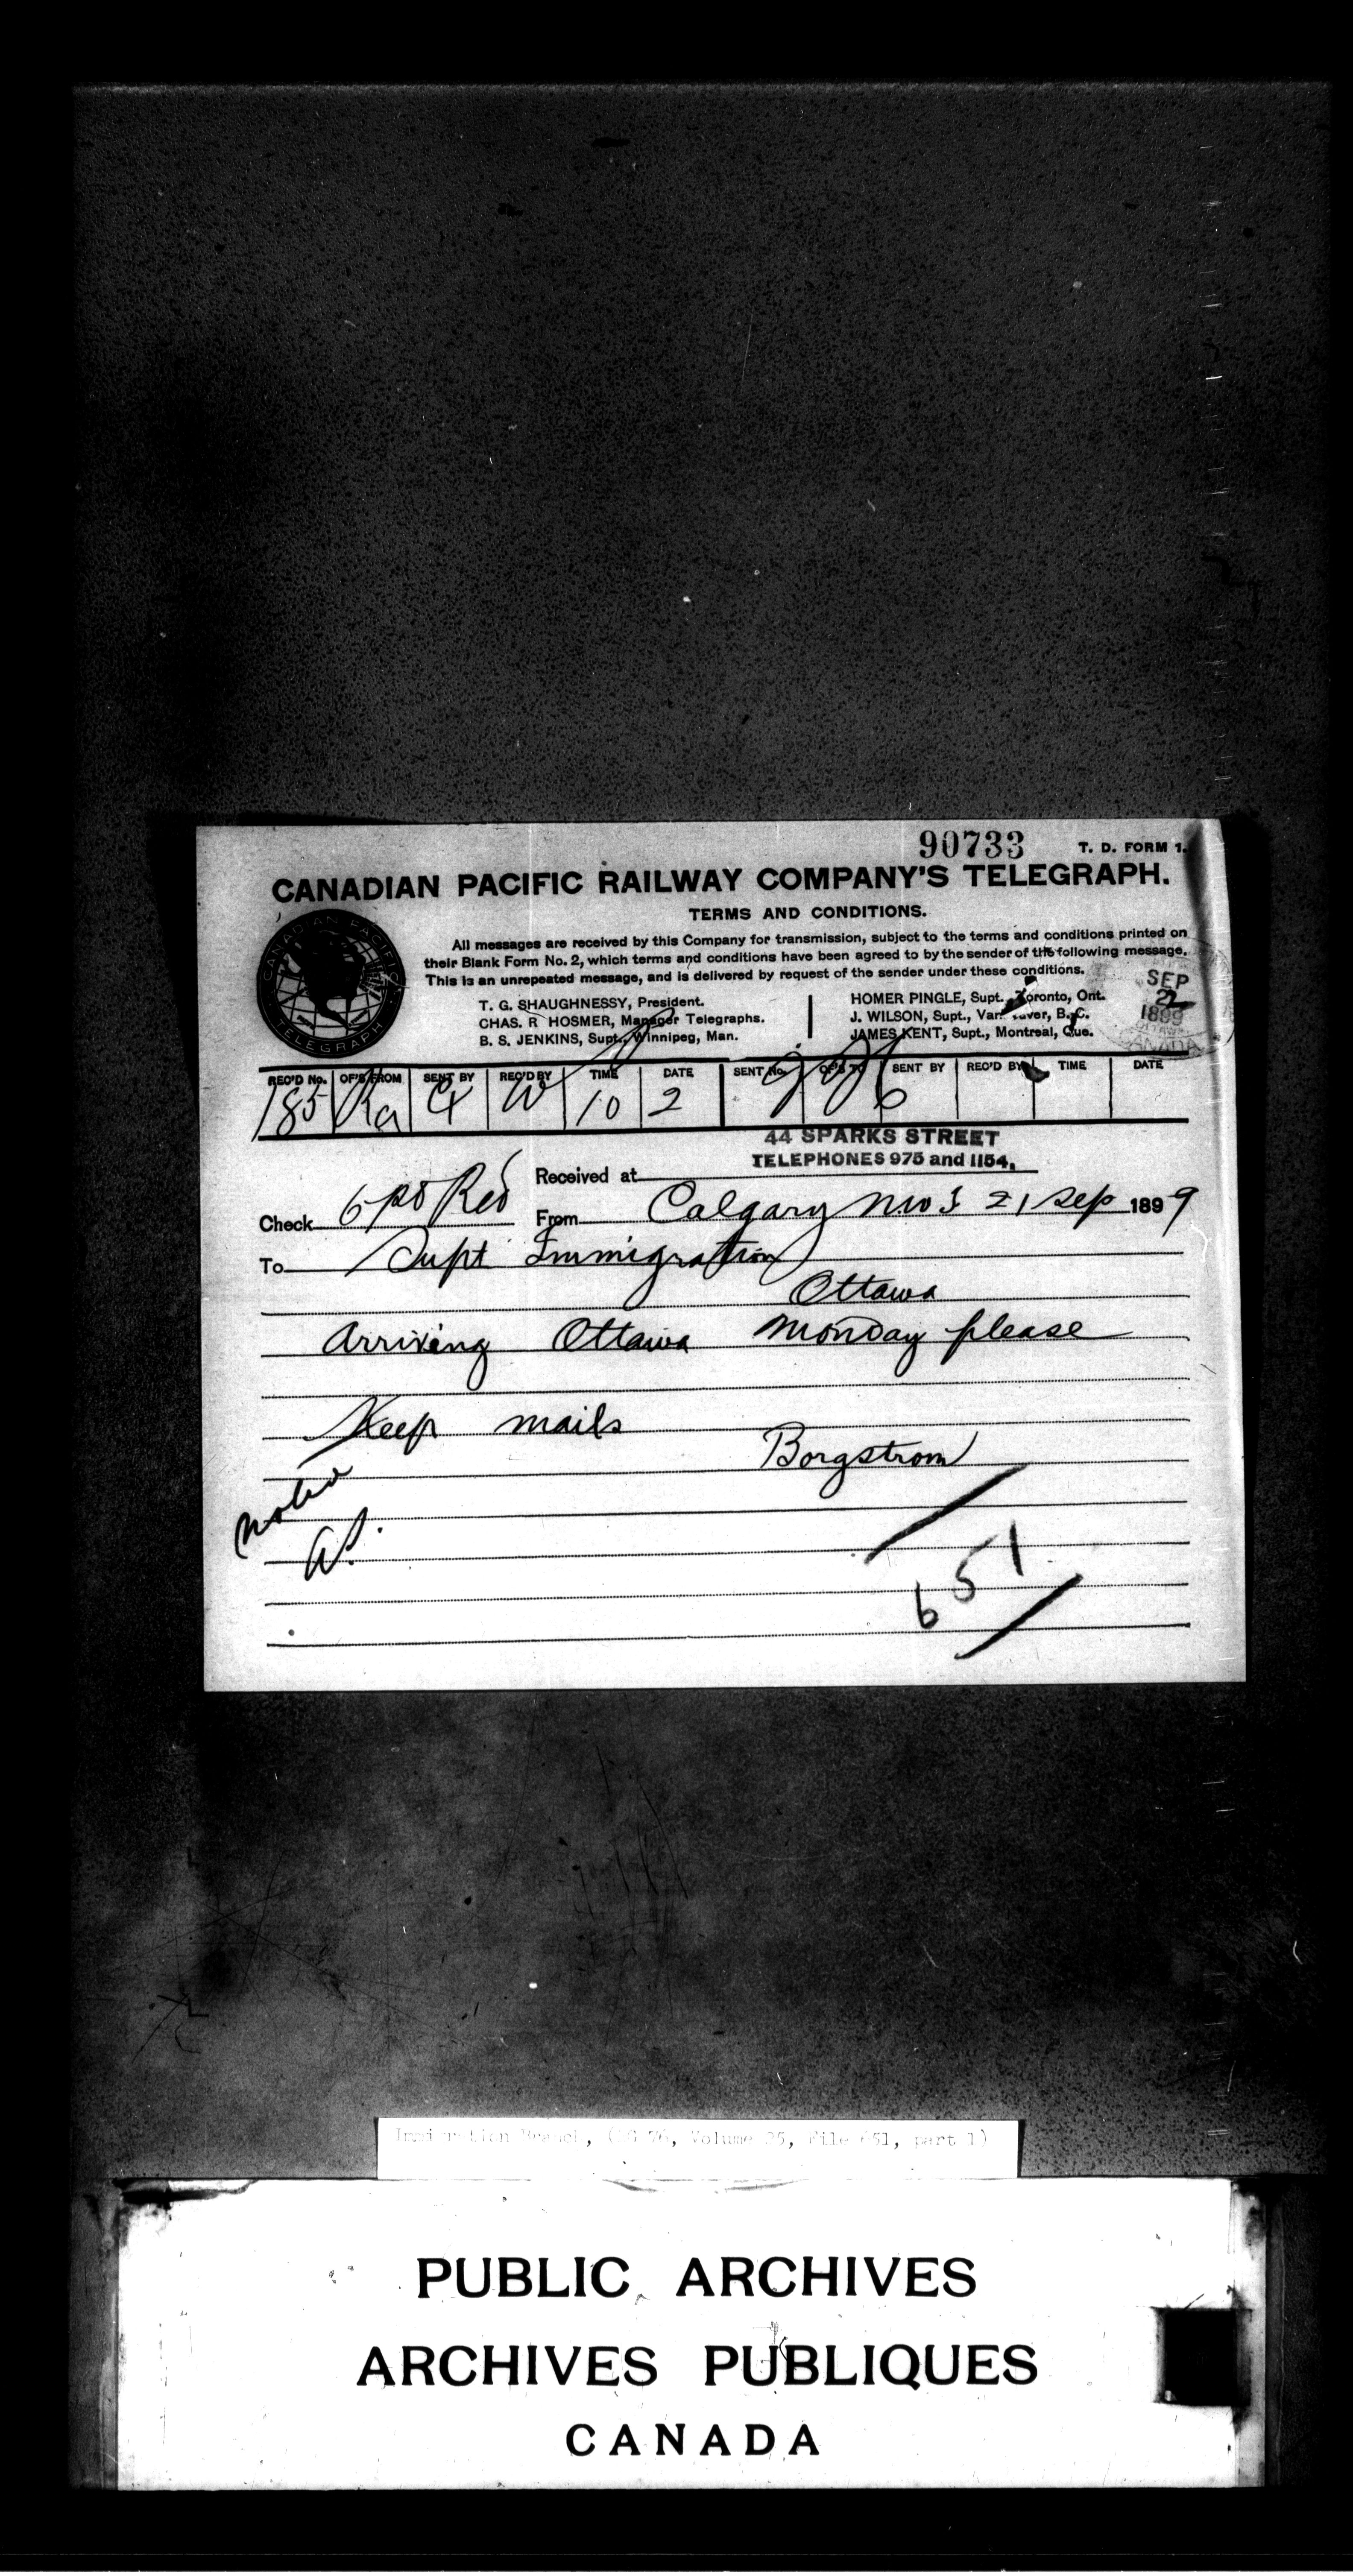 90733 T. D. FORM 1.
CANADIAN PACIFIC RAILWAY COMPANY'S TELEGRAPH.
TERMS AND CONDITIONS.
CANADIAN PACIFIC TELEGRAPH
All messages are received by this Company for transmission, subject to the terms and conditions printed on
their Blank Form No. 2, which terms and conditions have been agreed to by the sender of the following message.
This is an unrepeated message, and is delivered by request of the sender under these conditions.
T. G. SHAUGHNESSY, President.
CHAS. R HOSMER, Manager Telegraphs.
B. S. JENKINS, Supt., Winnipeg, Man.
HOMER PINGLE, Supt. Toronto, Ont.
J. WILSON, Supt., Vancouver, B.C.
JAMES KENT, Supt., Montreal, Que.
SEP
22
1899
OTTAWA
CANADA
REC'D No. OF'S FROM SENT BY REC'D BY TIME DATE SENT No. OF'S TO SENT BY REC'D BY TIME DATE
185 Ra W 10 2
44 SPARKS STREET
TELEPHONES 975 and 1154.
Received at
Check 6 pd From Calgary 21 Sep 1899
To Supt Immigration
Ottawa
Arriving Ottawa Monday please
Keep mails
Borgstrom
Noted
651
Immigration Branch, (RG 76, Volume 25, File 651, part 1)
PUBLIC ARCHIVES
ARCHIVES PUBLIQUES
CANADA